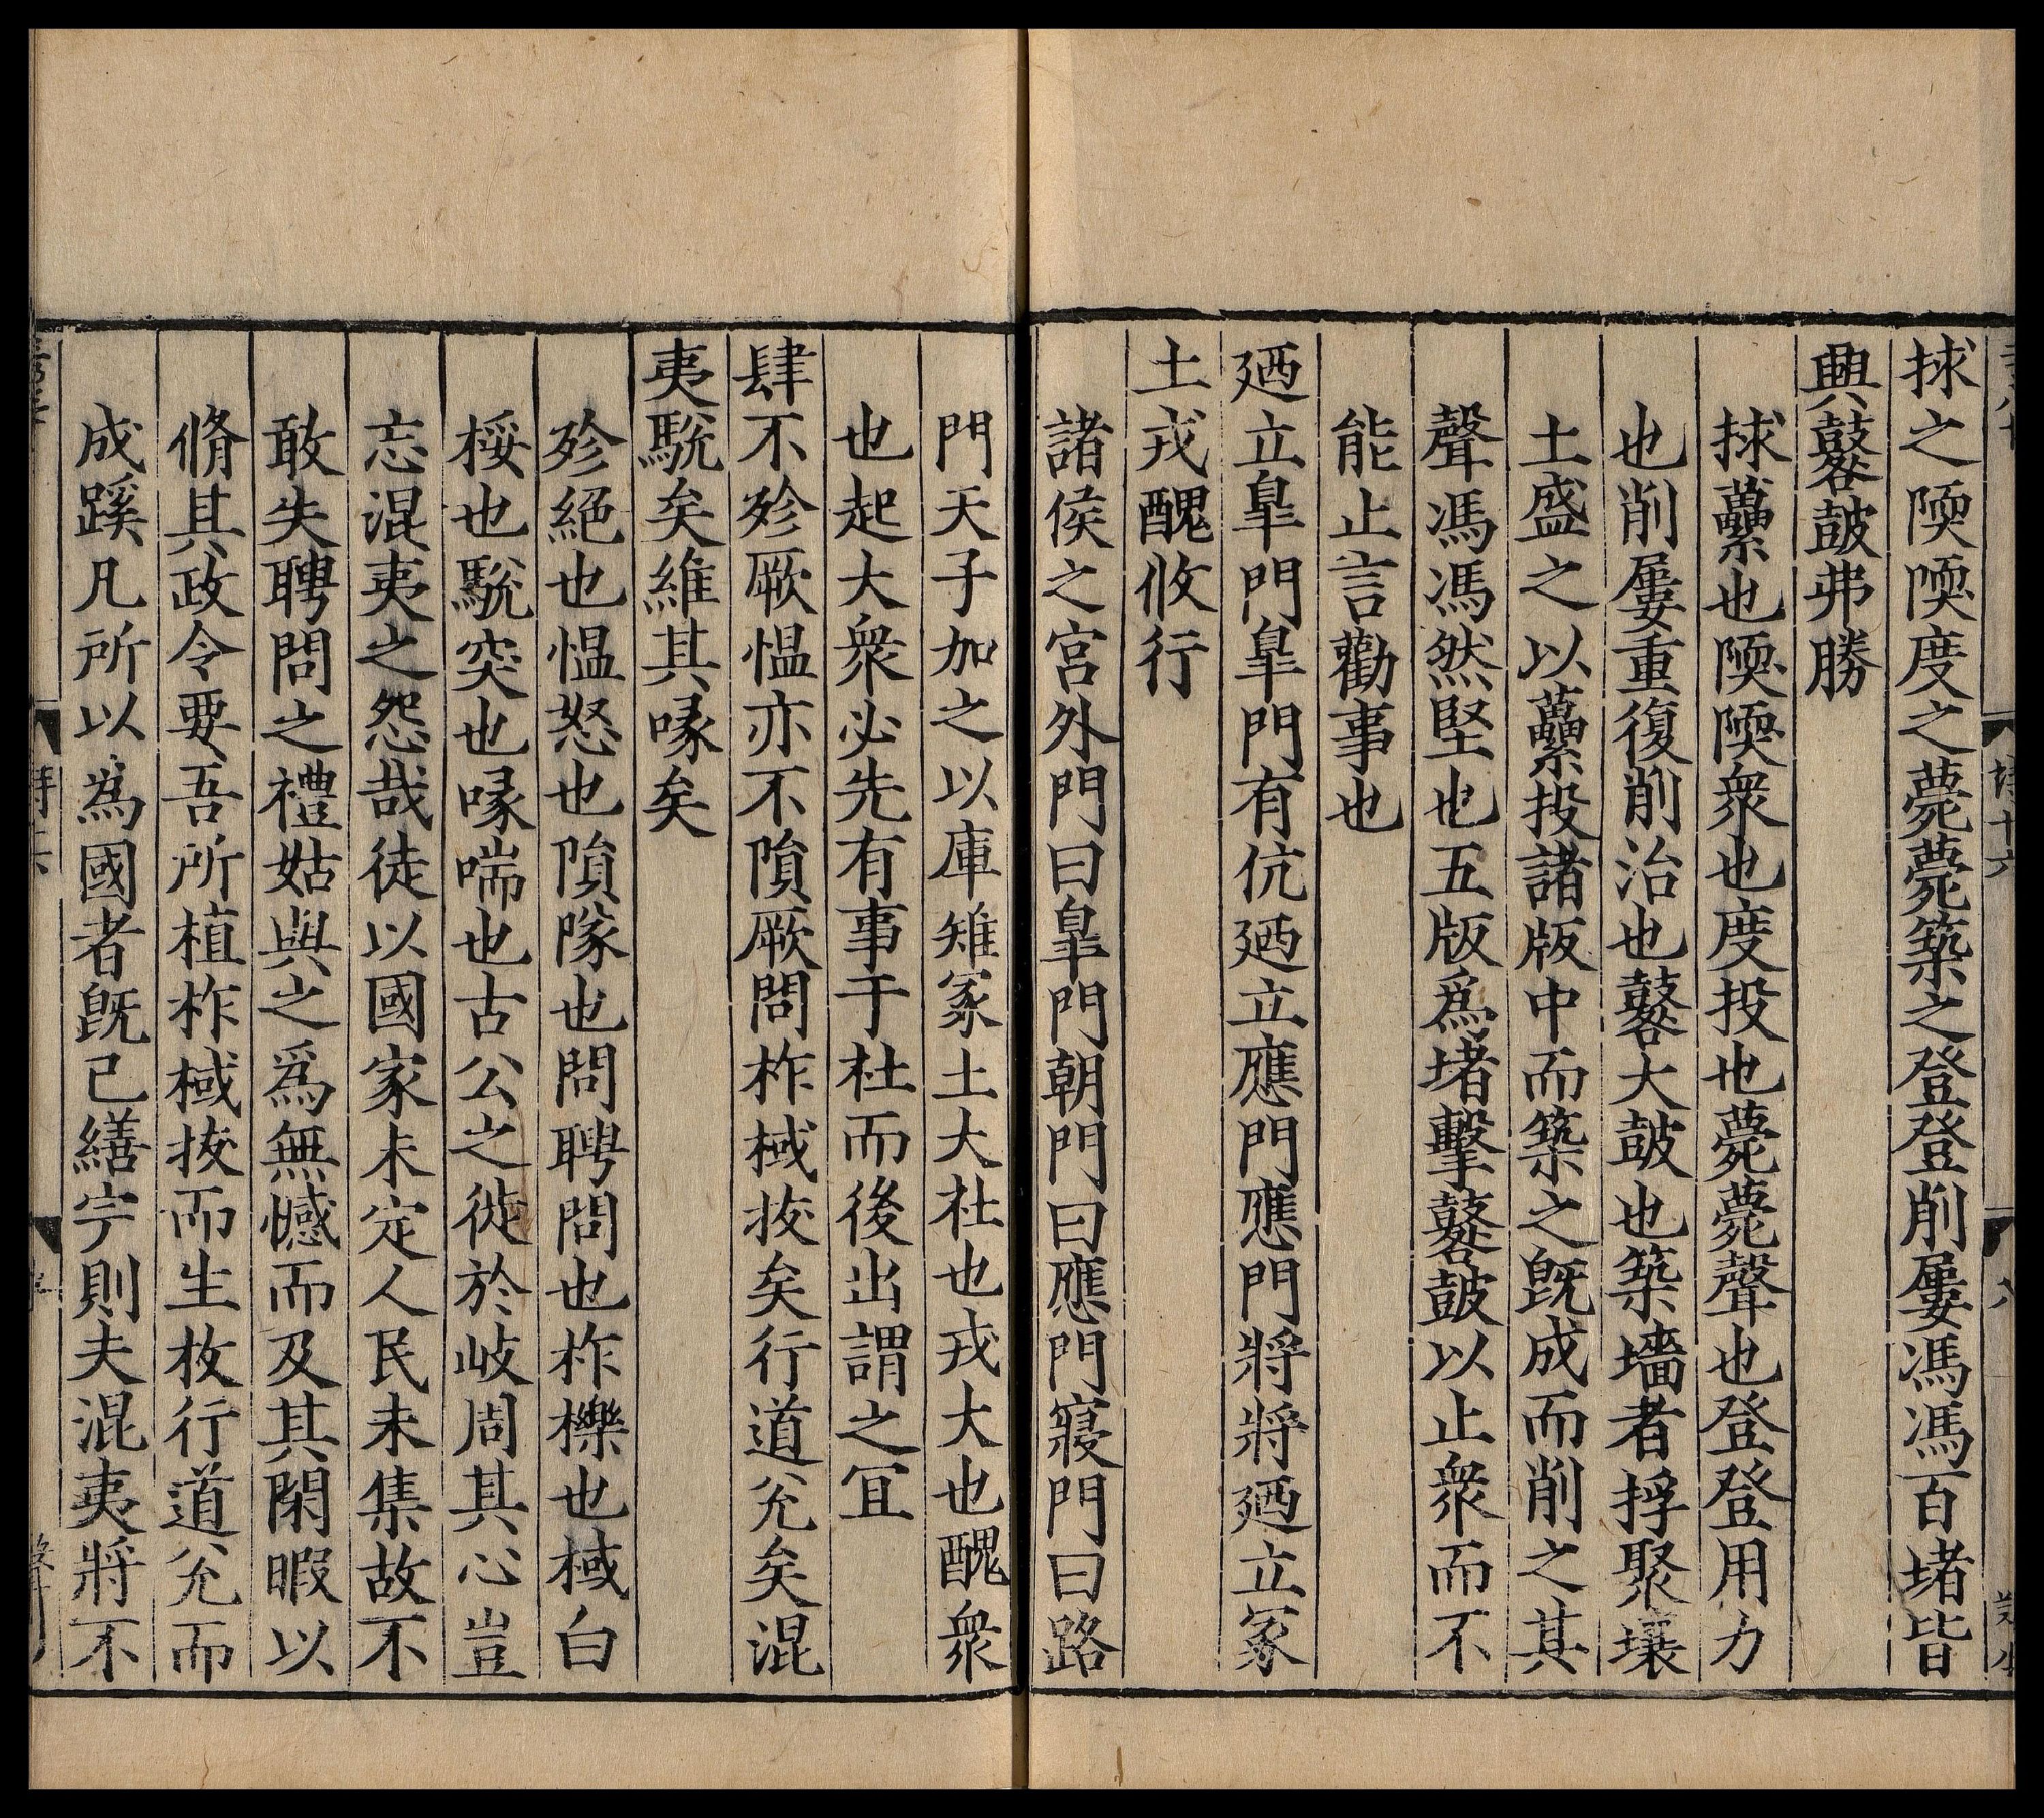 捄之陾陾度之薨薨築之登登削屢馮馮百堵皆
興鼛鼓弗勝
捄虆也陾陾衆也度投也薨薨聲也登登用力
也削屢重復削治也鼛大鼓也築墻者捊聚壤
土盛之以虆投諸版中而築之旣成而削之其
聲馮馮然堅也五版爲堵擊鼛鼓以止衆而不
能止言勸事也
廼立臯門臯門有伉廼立應門應門將將廼立冢
土戎醜攸行
諸侯之宮外門曰臯門朝門曰應門寢門曰路
門天子加之以庫雉冢土大社也戎大也醜衆
也起大衆必先有事于社而後出謂之冝
肆不殄厥愠亦不隕厥問柞棫拔矣行道兊矣混
夷駾矣維其喙矣
殄絕也愠怒也隕隊也問聘問也柞櫟也棫白
桵也駾突也喙喘也古公之徙於岐周其心豈
忘混夷之怨哉徒以國家未定人民未集故不
敢失聘問之禮姑與之爲無憾而及其閑暇以
脩其政令要吾所植柞棫拔而生枚行道兊而
成蹊凡所以為國者旣已繕完則夫混夷將不